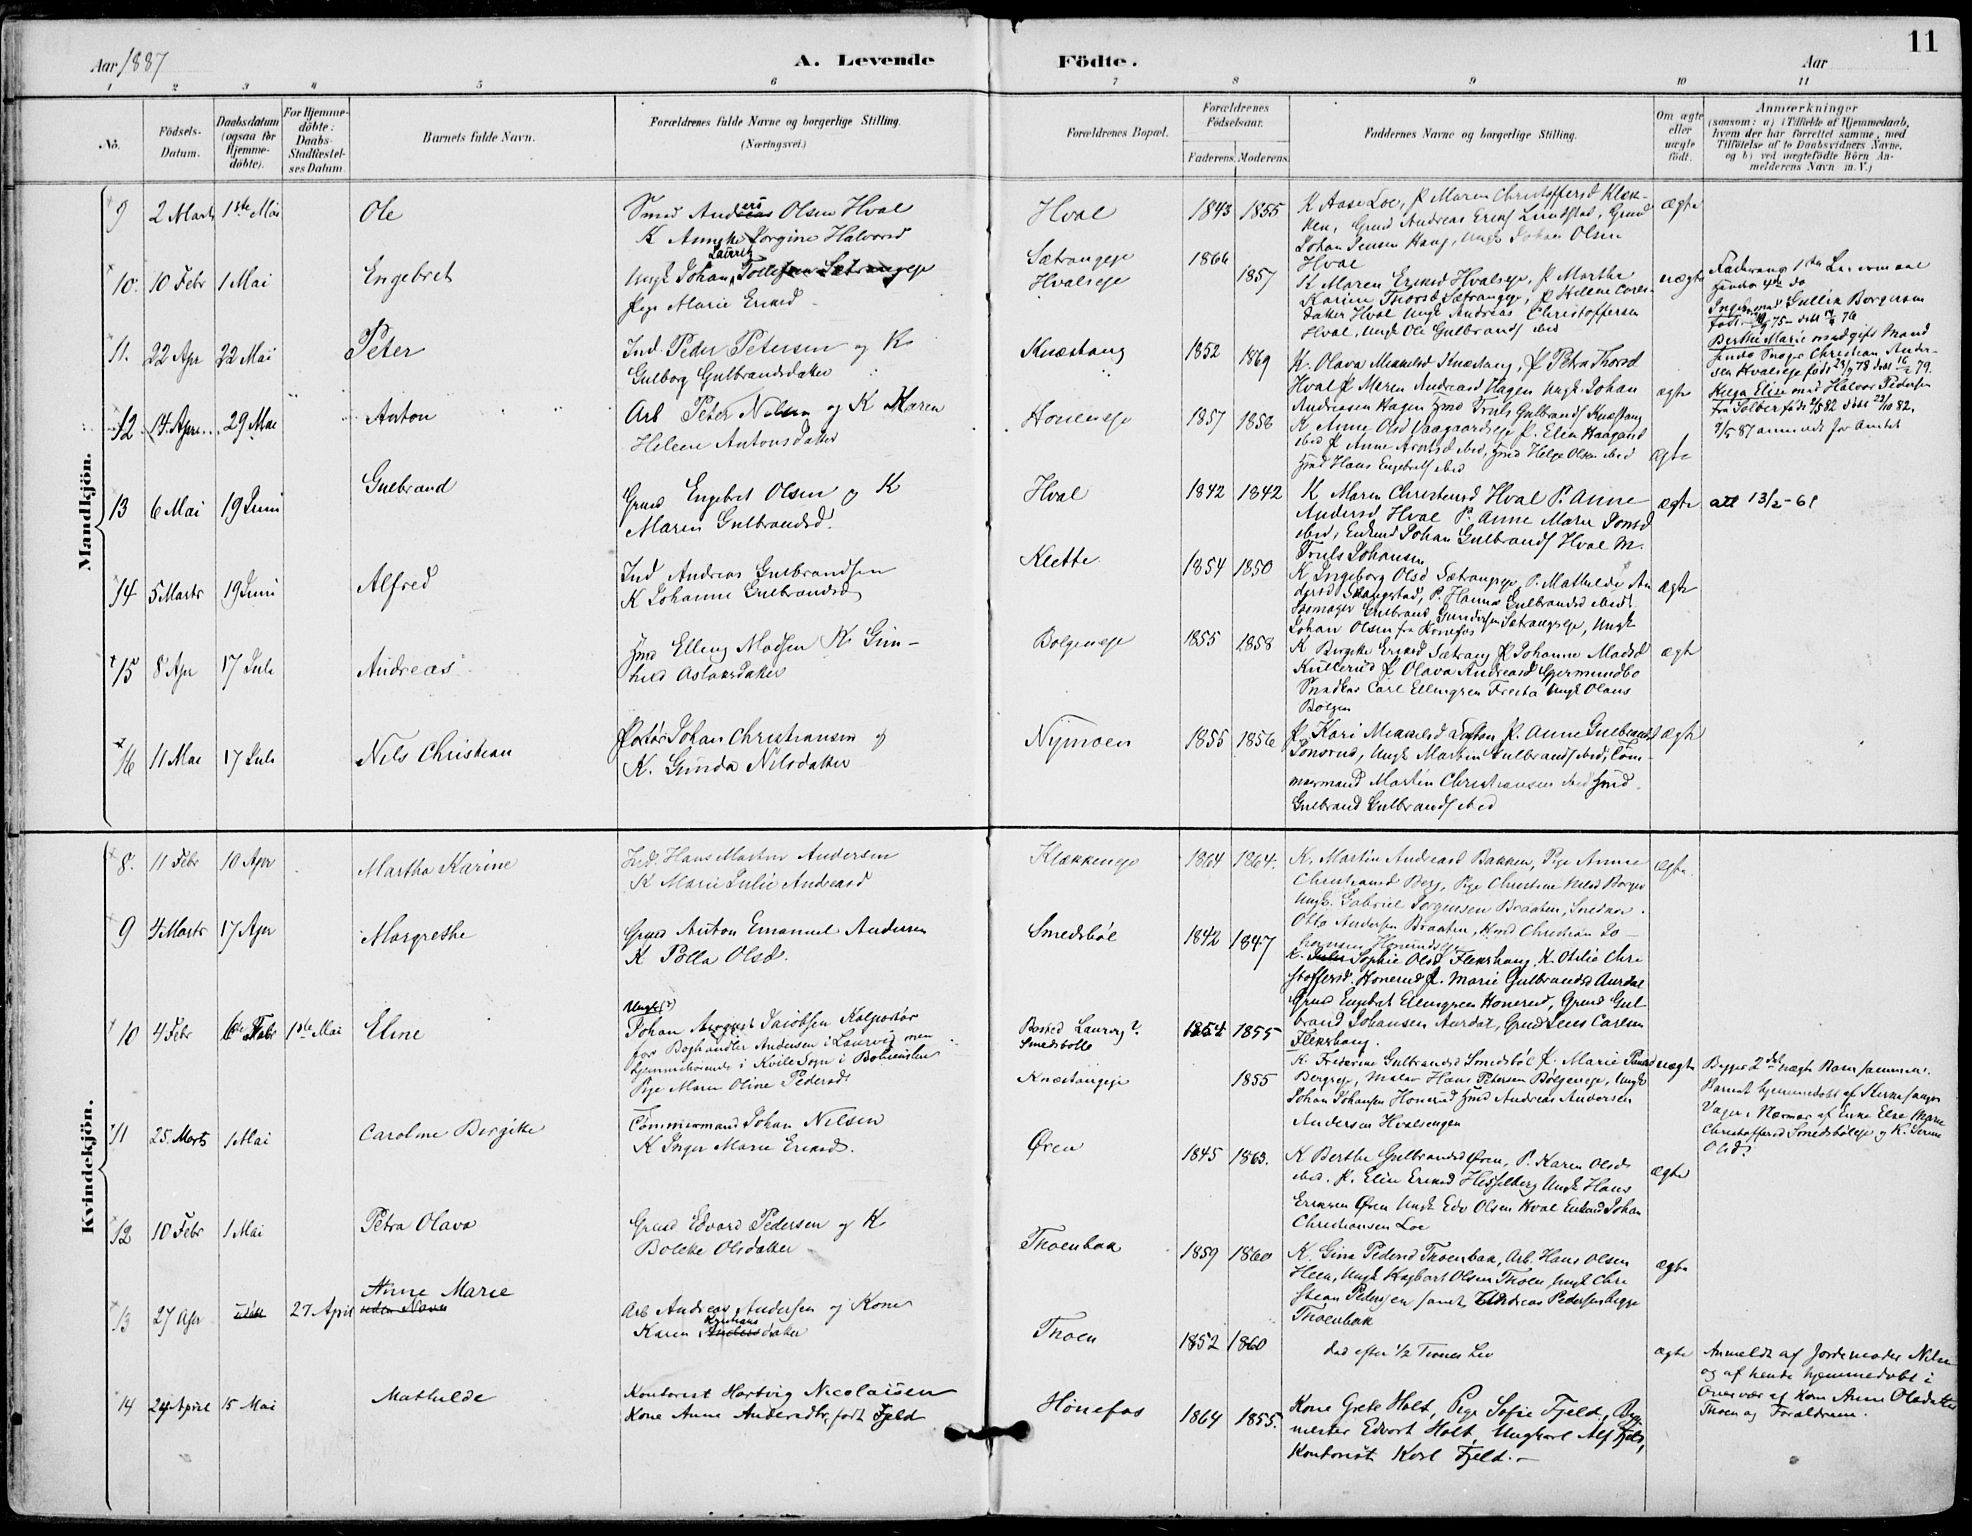 11
Aar 1887
A. Levende
Födte.
Aar
1 2 3 4 5 6 7 8 9 10 11
No.
Födsels-
Datum.
Daabsdatum
(ogsaa for
Hjemme-
döbte).
For Hjemme-
döbte:
Daabs-
Stadfæstel-
ses Datum
Barnets fulde Navn.
Forældrenes fulde Navne og borgerlige Stilling.
(Næringsvei.)
Forældrenes Bopæl.
Forældrenes
Födselsaar.
Faderens. Moderens.
Faddernes Navne og borgerlige Stilling.
Om ægte
eller
uægte
født.
Anmærkninger
(saasom: a) i Tilfælde af Hjemmedaab,
hvem der har forrettet samme, med
Tilföielse af to Daabsvidners Navne.
og b) ved uægtefödte Börn An-
melderens Navn m. V.)
Mandkjön.
9 2 Marts 1ste Mai Ole
Smed Anders Olsen Hval
K Annske Jorgine Halvorsd
Hval 1843 1855
K Aase Loe, P Maren Christoffersd Klæk-
ken, Grmd Andreas Eriks Lundstad, Grmd
Johan Jensen Haug, Ungk Johan Olsen
Hval
ægte
10. 10 Febr 1 Mai Engebret
Ungk Johan Lauritz Tollefsen Sætrangeje
Pige Marie Eriksd
Sætrangeje 1866
Hvalseje 1857
K Maren Eriksd Hvalseje, P Marthe
Karine Thorsd Sætrangeje, P Helene Carls-
datter Hval Ungk Andreas Christoffersen
Hval, Ungk Ole Gulbrands ibid
uægte
Faderens 1ste Leiermaal
hendes 4de do
Ingeb. med Gullik Borgersen
Berthe Marie med gift Mand
sen Hvalseje
Helga Elise med Halvor Pedersen
fra Solber født 2/5 82 døbt 22/10 82.
9/5 87 anmeldt for Amtet
11. 22 Apr 22 Mai Peter
Ind. Peder Petersen og K
Gulborg Gulbrandsdatter
Knæstang 1852 1869
K. Olava Mikkelsd Knæstang, P Petra Thorsd
Hval P Maren Andreasd Hagen Ungk Johan
Andreasen Hagen Grmd Truls Gulbrands Knæstang
ægte
12 14 Apr. 29 Mai Anton
Arb Peter Nilsen og K Karen
Helene Antonsdatter
Honerudeje 1857 1858
K Anne Olsd Vaagaardseje P. Elen Haagensd
ibid P Anne Aronsd ibid, Grmd Helge Olsen ibid
Grmd Hans Engebrets ibid
ægte
13 6 Mai 19 Juni Gulbrand
Grmd Engebret Olsen og K
Maren Gulbrandsd.
Hval 1842 1842
K Maren Christensd Hval P. Anne
Andersd Hval P. Anne Marie Jonsd
ibid, Enkmd Johan Gulbrands Hval M.
Truls Johansen
ægte att 13/2-61
14 5 Marts 19 Juni Alfred
Ind Andreas Gulbrandsen
K Johanne Gulbrandsd
Klette 1854 1850
K Ingeborg Olsd Sætrangeje, P. Mathilde An
dersd Skaugstad, P. Hanna Gulbrandsd ibid
Skomager Gulbrand Gundersen Sætrangeje, Ungk
Johan Olsen fra Honefos
ægte
15 8 Apr 17 Juli Andreas
Hmd Elling Madsen K Gun-
hild Aslaksdatter
Bolgeneje 1855 1858
K Birgitte Eriksd Sætrang P Johanne Madsd
Kullerud P Olava Andreasd Gjermundbo
Snedker Carl Ellingsen Ungk Olaus
Bolgen
ægte
16 11 Mai 17 Juli Nils Christian
Portør Johan Christiansen og
K. Gunda Nilsdatter
Nymoen 1855 1856
P. Kari Mikkelsd P. Anne Gulbrandsd
Jonsrud, Ungk Martin Gulbrands ibid, Tøm-
mermand Martin Christiansen ibid Hmd.
Gulbrand Gulbrands ibid
ægte
Kvindekjön.
8. 11 Febr 10 Apr Martha Karine
Ind. Hans Martin Andersen
K Marie Julie Andreasd
Klækkeneje 1864 1864.
K. Martin Andreasd Bakken, Pige Anne
Christiansd Berg, Pige Christine Nilsd Borger
Ungk. Gabriel Jorgensen Braaten, Snedker
Otto Andersen Braaten, Hmd Christian Jo-
hansen Honerudeje
ægte.
9 4 Marts 17 Apr Margrethe
Grmd Anton Emanuel Andersen
K Polla Olsd.
Smedsböl 1842 1847
K. Sophie Olsd Fleskhaug, K. Otilie Chri
stoffersd. Honerud P. Marie Gulbrandsd Aurdal
Grmd Engebret Ellingsen Honerud, Grmd Gul
brand Johansen Aurdal, Grmd Jens Carlsen
Fleskhaug.
10 4 Febr 6te Febr 1ste Mai Eline
Ungk(?)
Johan August Jacobsen Kolportør
for Boghandler Andersen i Laurvig men
hjemmehørende i Kville Sogn i Bohuslen
Pige Maren Oline Pedersd.
Bosted Laurvig?
Smedsbölle 1854 1855
Knæstangeje 1855
K. Frederine Gulbrandsd Smedsböl P. Marie
Bergseje, Maler Hans Petersen Bölgeneje, Ungk
Johan Johansen Honerud Hmd Andreas Andersen
Andersen Hvalsengen
uægte
Begges 2det uægte Barn sammen.
Barnet hjemmedøbt af Kirkesanger
Vager i Nærvær af Enke Else Marie
Christoffersd Smedsböleje og K. Serine
Olsd.
11 25. Marts 1 Mai Caroline Birgitte
Tømmermand Johan Nilsen
K Inger Marie Eriksd.
Øren 1845 1863.
K Berthe Gulbrandsd Øren, P. Karen Olsd
ibid. P. Eline Eriksd Hesselberg Ungk Hans
Eriksen Øren Ungk Edv Olsen Hval Enkmd Johan
Christiansen Loe
ægte
12 10 Febr 1 Mai Petra Olava
Grmd Edvard Pedersen og K
Bolette Olsdatter
Thoenbak 1859 1860
K. Gina Pedersd Thoenbak, Arb. Hans Olsen
Heen, Ungk Hagbart Olsen Thoen Ungk Chri
stian Pedersen samt Andreas Pedersen begge
Thoenbak
ægte
13 27 Apr udøbt 27 April
Anne Marie
uden Navn
Arb Andreas Andersen og Kone
Karen Andersdatter
Thoen 1852 1860
død efter 1/2 Times Liv
ægte
Anmeldt af Jordemoder Nilsen
og af hende hjemmedøbt i
Overvær af Kone Anne Olsdatter
Thoen og Forældrene.
14 24 April 15 Mai Mathilde
Kontorist Hartvig Nicolaisen
Kone Anne Andersdtr, født Fjeld
Hönefos 1864 1855.
Kone Grete Holt, Pige Sofie Fjeld, Byg-
mester Edvart Holt, Ungkarl Alf Fjeld,
Kontorist Karl Fjeld.